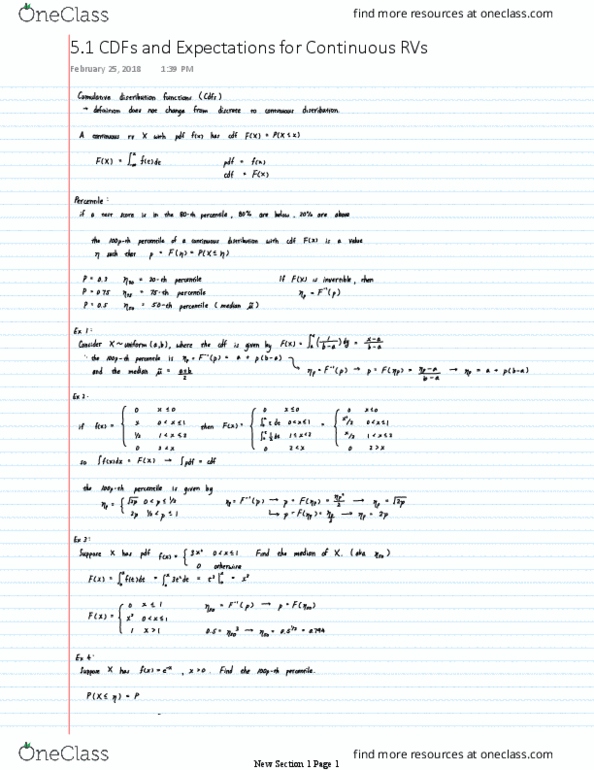 OneClass find more resources at oneclass.com
5.1 CDFs and Expectations for Continuous RVs
February 25, 2018 1:39 PM
Cumulative distribution functions (Cdfs)
→ definition does not change from discrete to continuous distribution.
A continuous rv X with pdf f(x) has cdf F(X) = P(X ≤ x)
F(X) = ∫_-∞^x f(t)dt pdf = f(x)
cdf = F(x)
Percentile:
if a test score is in the 80-th percentile, 80% are below, 20% are above
the 100p-th percentile of a continuous distribution with cdf F(x) is a value
η such that p = F(η) = P(X ≤ η)
P = 0.3 η30 = 30-th percentile If F(X) is invertible, then
P = 0.75 η75 = 75-th percentile ηp = F⁻¹(p)
P = 0.5 η50 = 50-th percentile (median μ̃)
Ex 1:
Consider X ~ uniform (a,b), where the cdf is given by F(X) = ∫_a^x (1/b-a) dy = x-a/b-a
∴ the 100p-th percentile is ηp = F⁻¹(p) = a + p(b-a)
and the median μ̃ = a+b/2 ηp = F⁻¹(p) → p = F(ηp) = ηp-a/b-a → ηp = a + p(b-a)
Ex 2:
0 x ≤ 0 0 x ≤ 0 0 x ≤ 0
if f(x) = { x 0 < x ≤ 1 then F(x) = { ∫_0^x t dt 0 < x ≤ 1 = { x²/2 0 < x ≤ 1
1/2 1 < x ≤ 2 1 < x < 2 x/2 1 < x ≤ 2
so ∫f(x)dx = F(X) → ∫pdf = cdf
the 100p-th percentile is given by
ηp = { √2p 0 < p ≤ 1/2 ηp = F⁻¹(p) → p = F(ηp) = ηp²/2 → ηp = √2p
2p 1/2 < p ≤ 1 ↳ p = F(ηp) = ηp/2 → ηp = 2p
Ex 3:
Suppose X has pdf f(x) = { 3x² 0 < x ≤ 1 Find the median of X. (aka η50)
0 otherwise
F(X) = ∫_0^x f(t)dt = ∫_0^x 3t² dt = t³ |_0^x = x³
0 x ≤ 1 η50 = F⁻¹(p) → p = F(η50)
F(X) = { x³ 0 < x ≤ 1
1 x > 1 0.5 = η50³ → η50 = 0.5^1/3 = 0.794
Ex 4:
Suppose X has f(x) = e^-x, x > 0. Find the 100p-th percentile.
P(X ≤ η) = P
OneClass find more resources at oneclass.com
New Section 1 Page 1